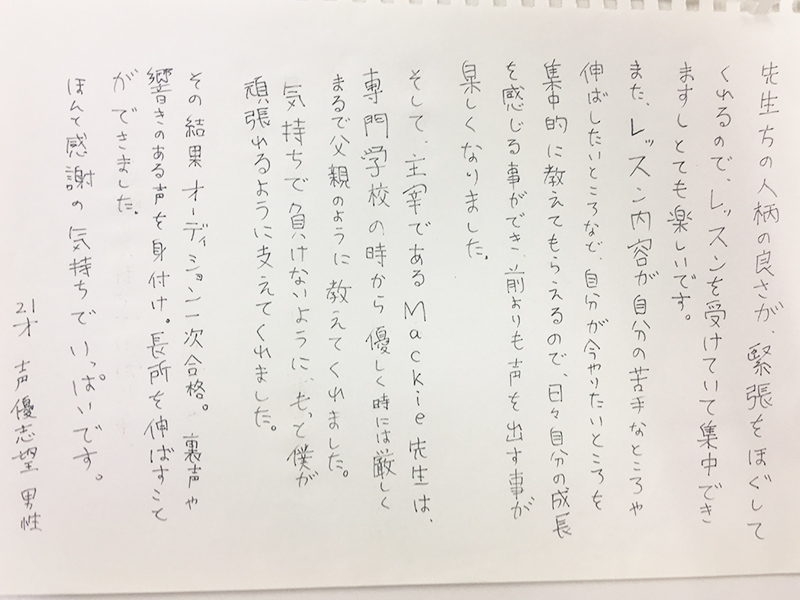 先生方の人柄の良さが、緊張をほぐして
くれるので、レッスンを受けていて集中でき
ますしとても楽しいです。
また、レッスン内容が自分の苦手なところや
伸ばしたいところなど、自分が今やりたいところを
集中的に教えてもらえるので、日々自分の成長
を感じる事ができ、前よりも声を出す事が
楽しくなりました。
そして、主宰であるMackie先生は、
専門学校の時から優しく時には厳しく
まるで父親のように教えてくれました。
気持ちで負けないように、もっと僕が
頑張れるように支えてくれました。
その結果オーディション一次合格。裏声や
響きのある声を身付け。長所を伸ばすこと
ができました。
ほんと感謝の気持ちでいっぱいです。
21才 声優志望 男性